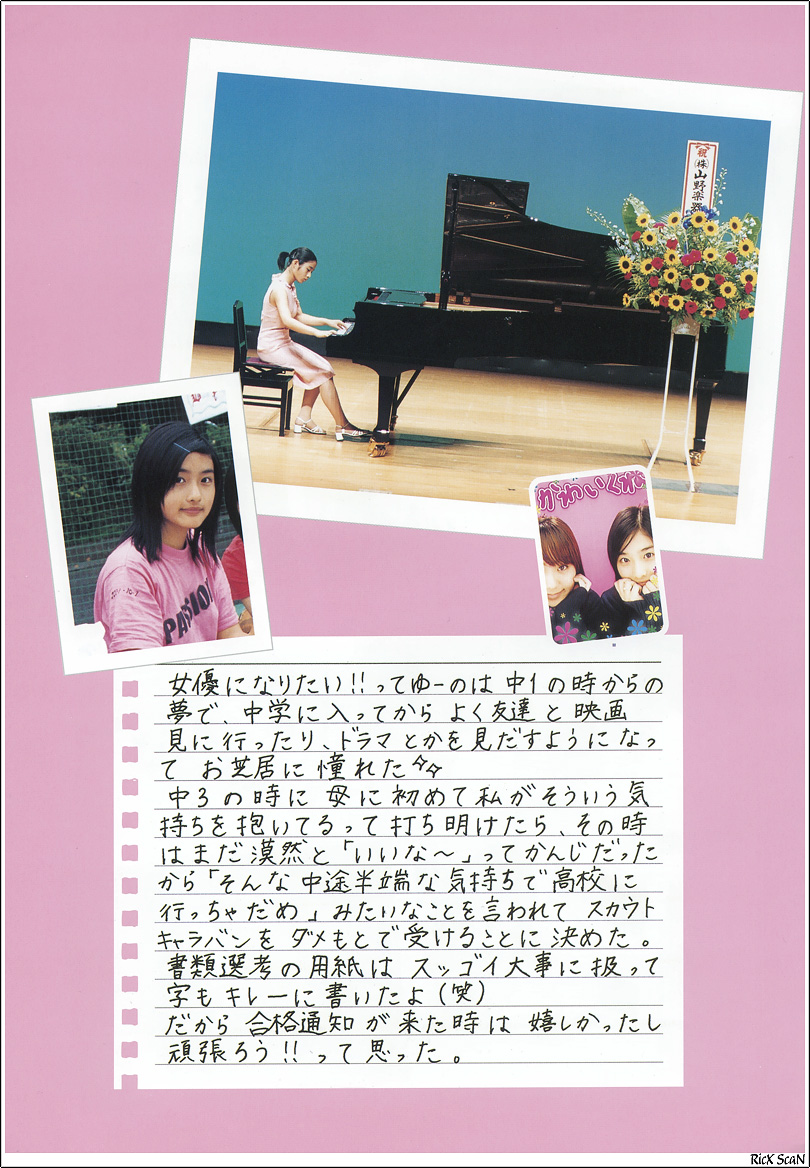 祝
㈱
山野楽器
かわいくね
PASSION
女優になりたい!!ってゆーのは中1の時からの
夢で、中学に入ってからよく友達と映画
見に行ったり、ドラマとかを見だすようになっ
てお芝居に憧れた☆☆
中3の時に母に初めて私がそういう気
持ちを抱いてるって打ち明けたら、その時
はまだ漠然と「いいな〜」ってかんじだった
から「そんな中途半端な気持ちで高校に
行っちゃだめ」みたいなことを言われてスカウト
キャラバンをダメもとで受けることに決めた。
書類選考の用紙はスッゴイ大事に扱って
字もキレーに書いたよ(笑)
だから合格通知が来た時は嬉しかったし
頑張ろう!!って思った。
RicX ScaN